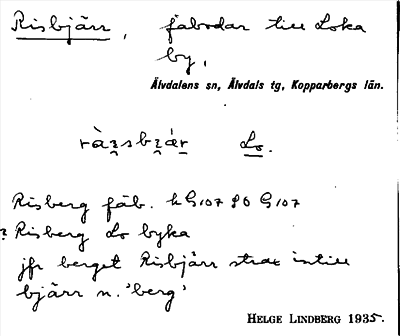 Risbjärr, fäbodar till Loka
by,
Älvdalens sn, Älvdals tg, Kopparbergs län.
Lo.
Risberg fäb. G107 G107
? Risberg Lo byka
jfr berget Risbjärr strax intill
bjärr n. 'berg'
HELGE LINDBERG 1935.